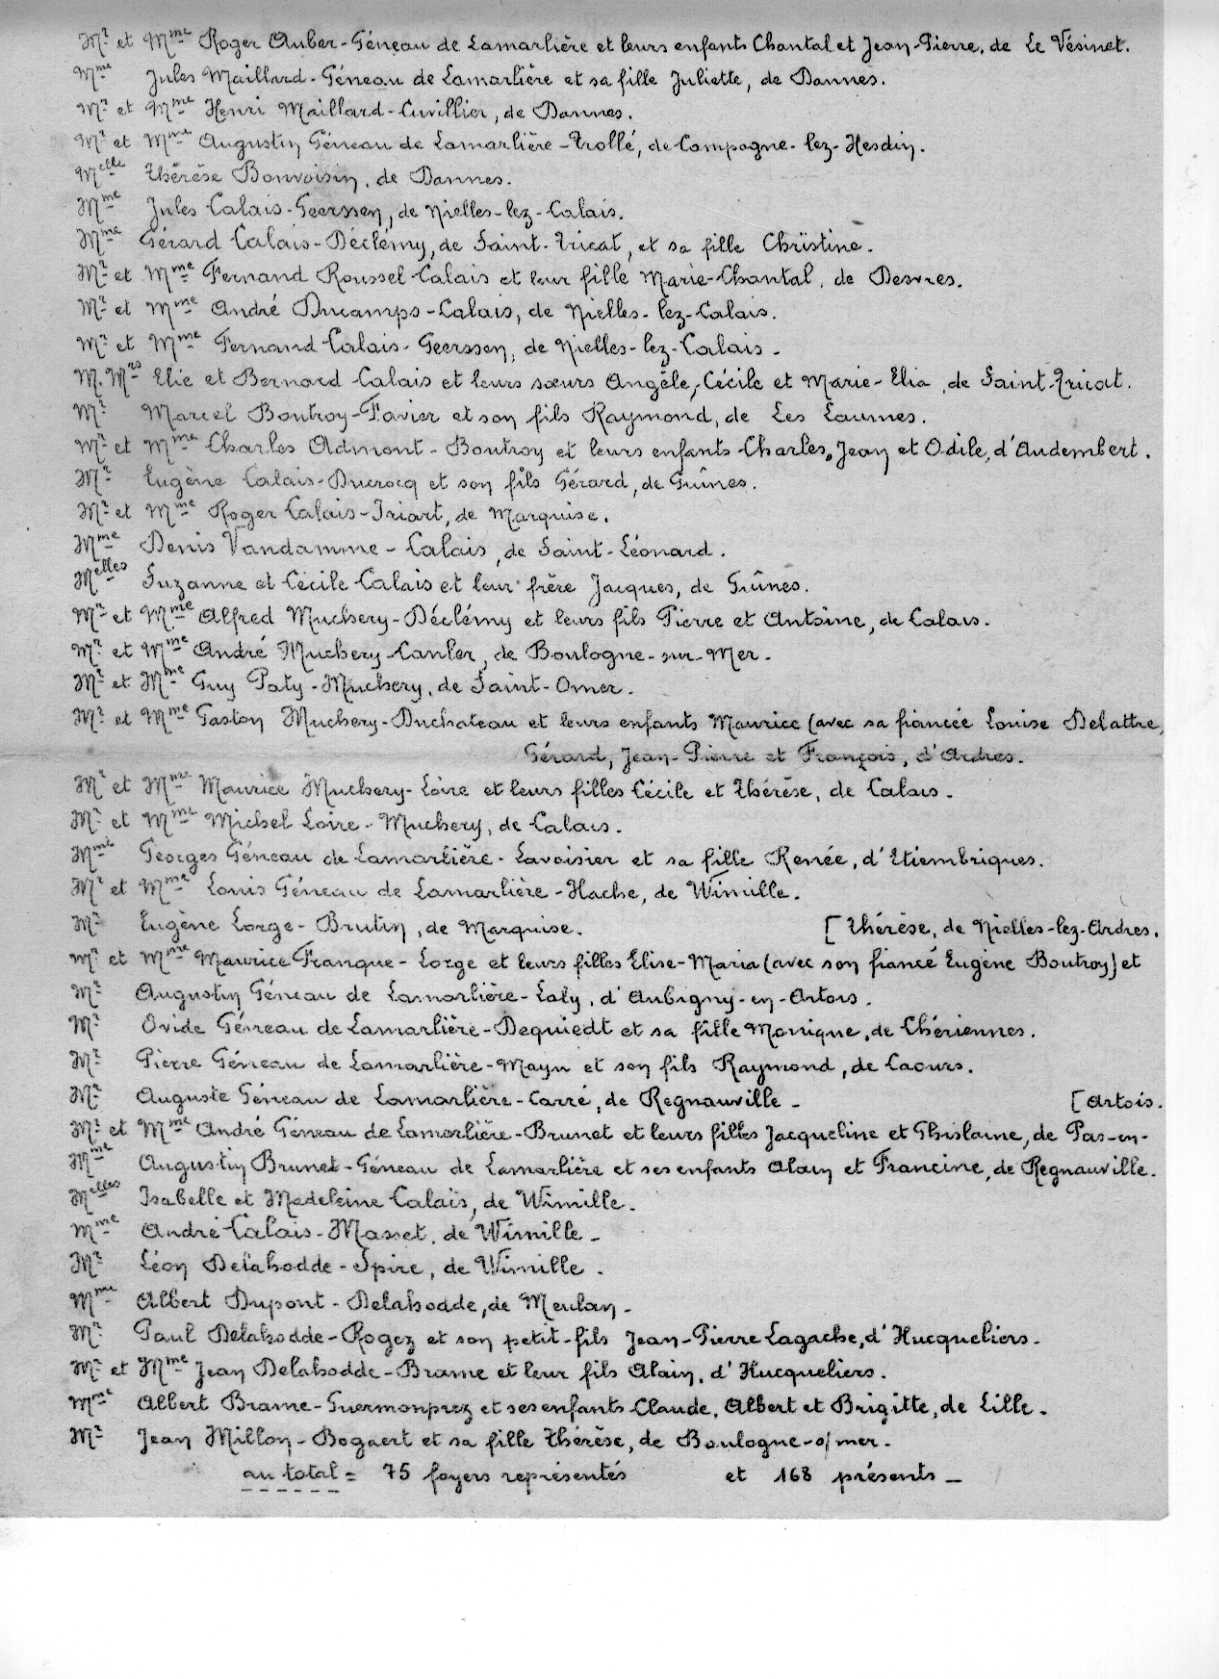 Mr et Mme Roger Auber-Géneau de Lamarlière et leurs enfants Chantal et Jean-Pierre, de Le Vésinet.
Mme Jules Maillard-Géneau de Lamarlière et sa fille Juliette, de Dannes.
Mr et Mme Henri Maillard-Cuvillier, de Dannes.
Mr et Mme Augustin Géneau de Lamarlière-Trollé, de Campagne-lez-Hesdin.
Melle Thérèse Bonvoisin, de Dannes.
Mme Jules Calais-Geerssen, de Nielles-lez-Calais.
Mme Gérard Calais-Déclémy, de Saint-Tricat, et sa fille Christine.
Mr et Mme Fernand Roussel-Calais et leur fille Marie-Chantal, de Desvres.
Mr et Mme André Ducamps-Calais, de Nielles-lez-Calais.
Mr et Mme Fernand Calais-Geerssen, de Nielles-lez-Calais -
M.Mrs Elie et Bernard Calais et leurs sœurs Angèle, Cécile et Marie-Elia, de Saint-Tricat.
Mr Marcel Boutroy-Favier et son fils Raymond, de Les Laumes.
Mr et Mme Charles Admont-Boutroy et leurs enfants Charles, Jean et Odile, d'Audembert.
Mr Eugène Calais-Ducrocq et son fils Gérard, de Guînes.
Mr et Mme Roger Calais-Iriart, de Marquise.
Mme Denis Vandamme-Calais, de Saint-Léonard.
Melles Suzanne et Cécile Calais et leur frère Jacques, de Guînes.
Mr et Mme Alfred Muchery-Déclémy et leurs fils Pierre et Antoine, de Calais.
Mr et Mme André Muchery-Canler, de Boulogne-sur-Mer.
Mr et Mme Guy Paty-Muchery, de Saint-Omer.
Mr et Mme Gaston Muchery-Duchateau et leurs enfants Maurice (avec sa fiancée Louise Delattre,
Gérard, Jean-Pierre et François, d'Ardres.
Mr et Mme Maurice Muchery-Loire et leurs filles Cécile et Thérèse, de Calais.
Mr et Mme Michel Loire-Muchery, de Calais.
Mme Georges Géneau de Lamarlière-Lavoisier et sa fille Renée, d'Etiembriques.
Mr et Mme Louis Géneau de Lamarlière-Hache, de Wimille.
Mr Eugène Lorge-Brutin, de Marquise. [Thérèse, de Nielles-lez-Ardres.
Mr et Mme Maurice Franque-Lorge et leurs filles Elise-Maria (avec son fiancé Eugène Boutroy) et
Mr Augustin Géneau de Lamarlière-Laly, d'Aubigny-en-Artois.
Mr Ovide Géneau de Lamarlière-Dequiedt et sa fille Monique, de Chériennes.
Mr Pierre Géneau de Lamarlière-Mayu et son fils Raymond, de Caours.
Mr Auguste Géneau de Lamarlière-Carré, de Regnauville - [Artois.
Mr et Mme André Géneau de Lamarlière-Brunet et leurs filles Jacqueline et Ghislaine, de Pas-en-
Mme Augustin Brunet-Géneau de Lamarlière et ses enfants Alain et Francine, de Regnauville.
Melles Isabelle et Madeleine Calais, de Wimille.
Mme André Calais-Masset, de Wimille -
Mr Léon Delahodde-Spire, de Wimille.
Mme Albert Dupont-Delahodde, de Meulan -
Mr Paul Delahodde-Rogez et son petit-fils Jean-Pierre Lagache, d'Hucqueliers -
Mr et Mme Jean Delahodde-Brame et leur fils Alain, d'Hucqueliers.
Mme Albert Brame-Guermonprez et ses enfants Claude, Albert et Brigitte, de Lille.
Mr Jean Millon-Bogaert et sa fille Thérèse, de Boulogne-s/mer.
au total = 75 foyers représentés et 168 présents -